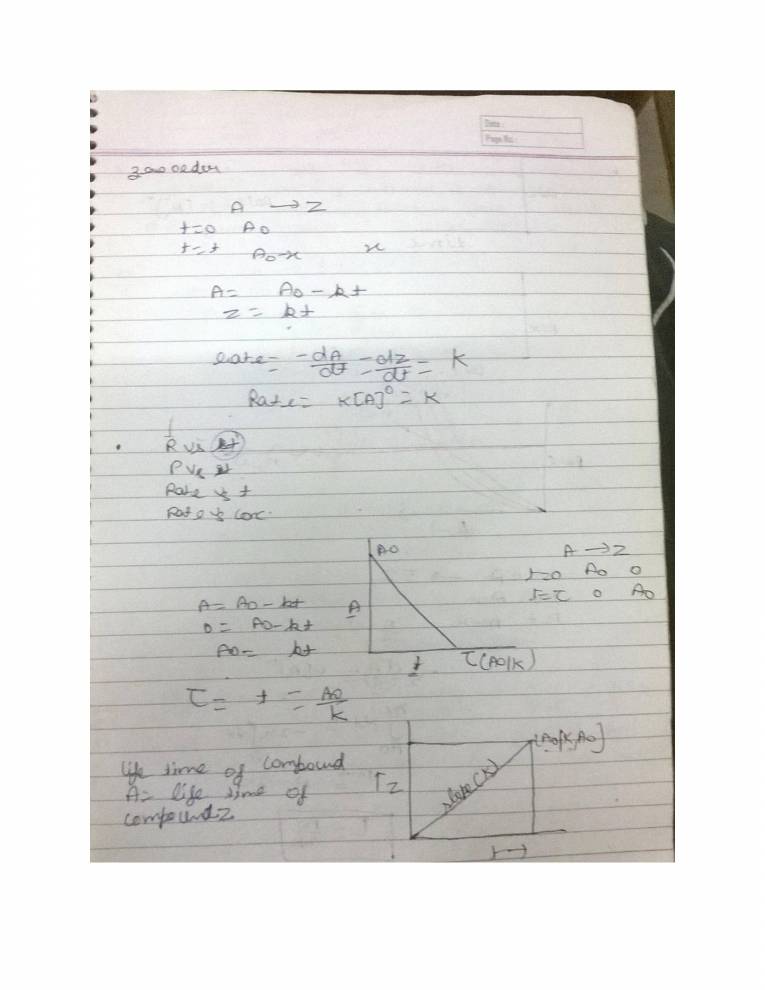 Date :
Page No. :
zero order
A → Z
t=0 A0
t=t A0-x x
A= A0 - kt
Z = kt
Rate= -dA/dt = dZ/dt = K
Rate= K[A]^0 = K
R vs t
P vs t
Rate vs t
Rate vs conc.
A = A0 - kt
0 = A0 - kt
A0 = kt
A0
A
t
τ(A0/K)
A → Z
t=0 A0 0
t=τ 0 A0
τ = t = A0/K
life time of compound
A = life time of
compound Z
↑Z
slope(K)
[A0/K, A0]
t→